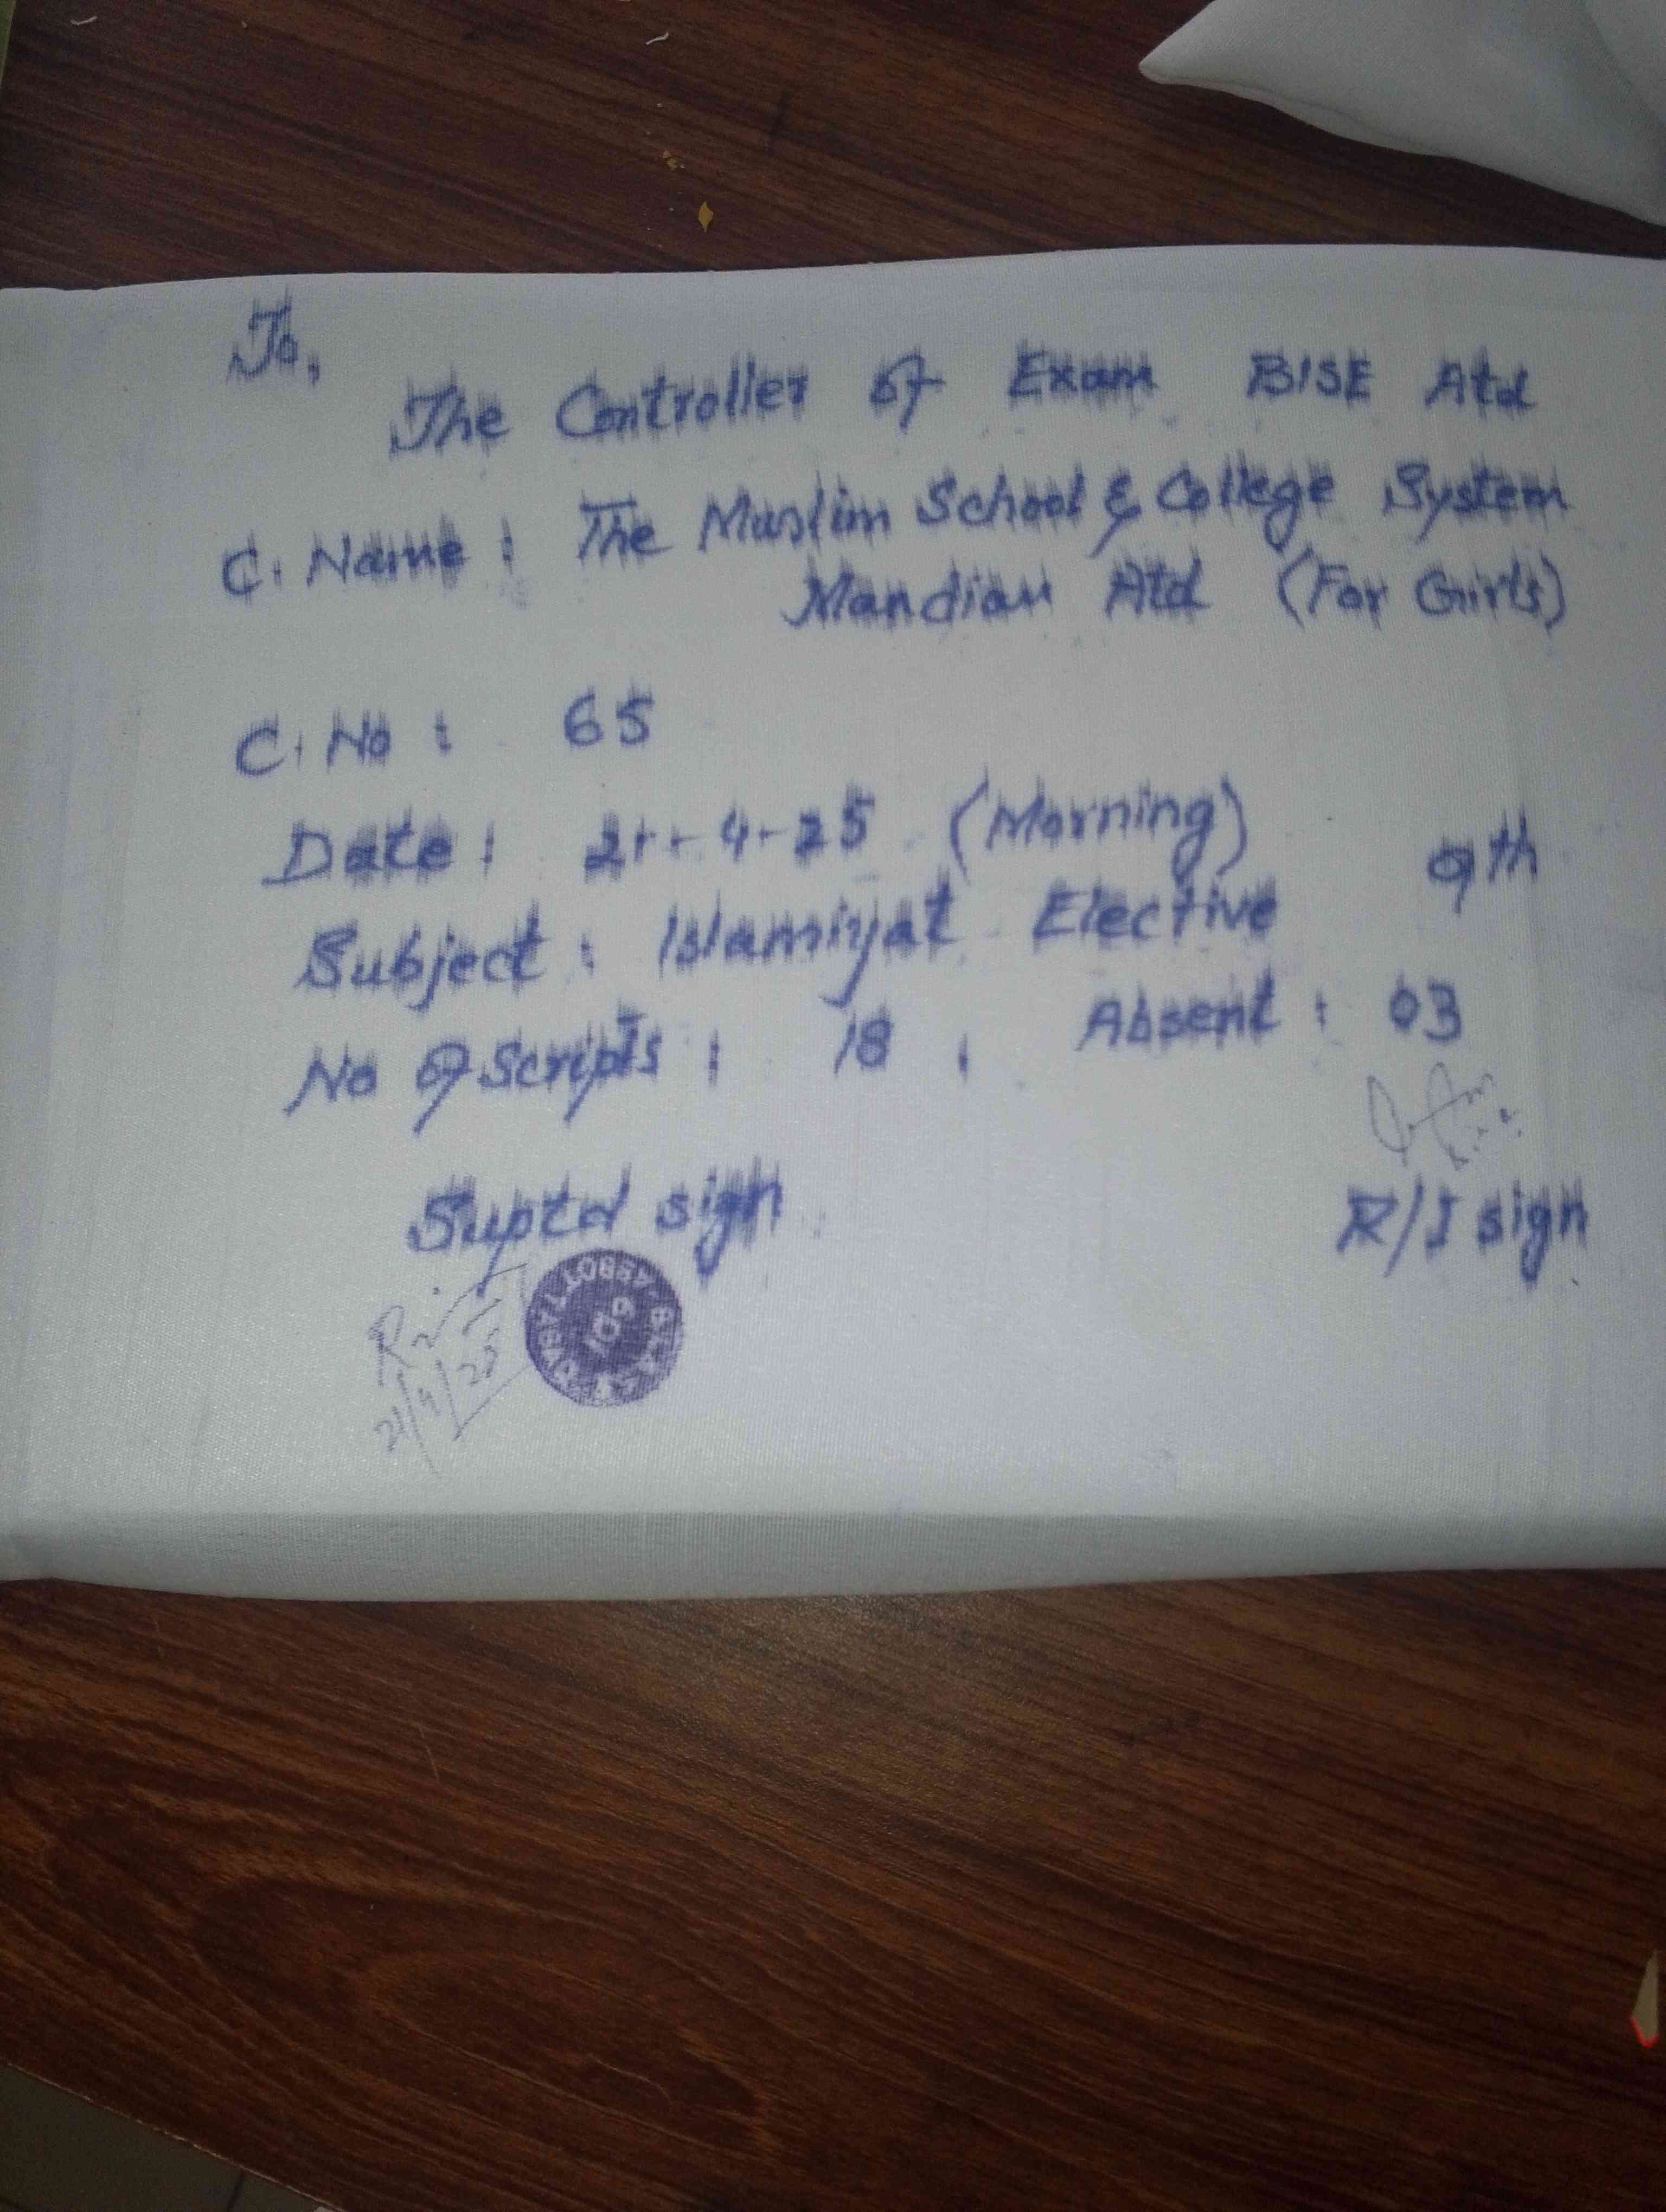 To,
The Controller of Exam BISE Atd
C. Name : The Muslim School & College System
Mandian Atd (For Girls)
C. No : 65
Date : 21-4-25 (Morning) 9th
Subject : Islamiyat Elective
No of Scripts : 18 , Absent : 03
Suptd sign R/I sign
21/4/25